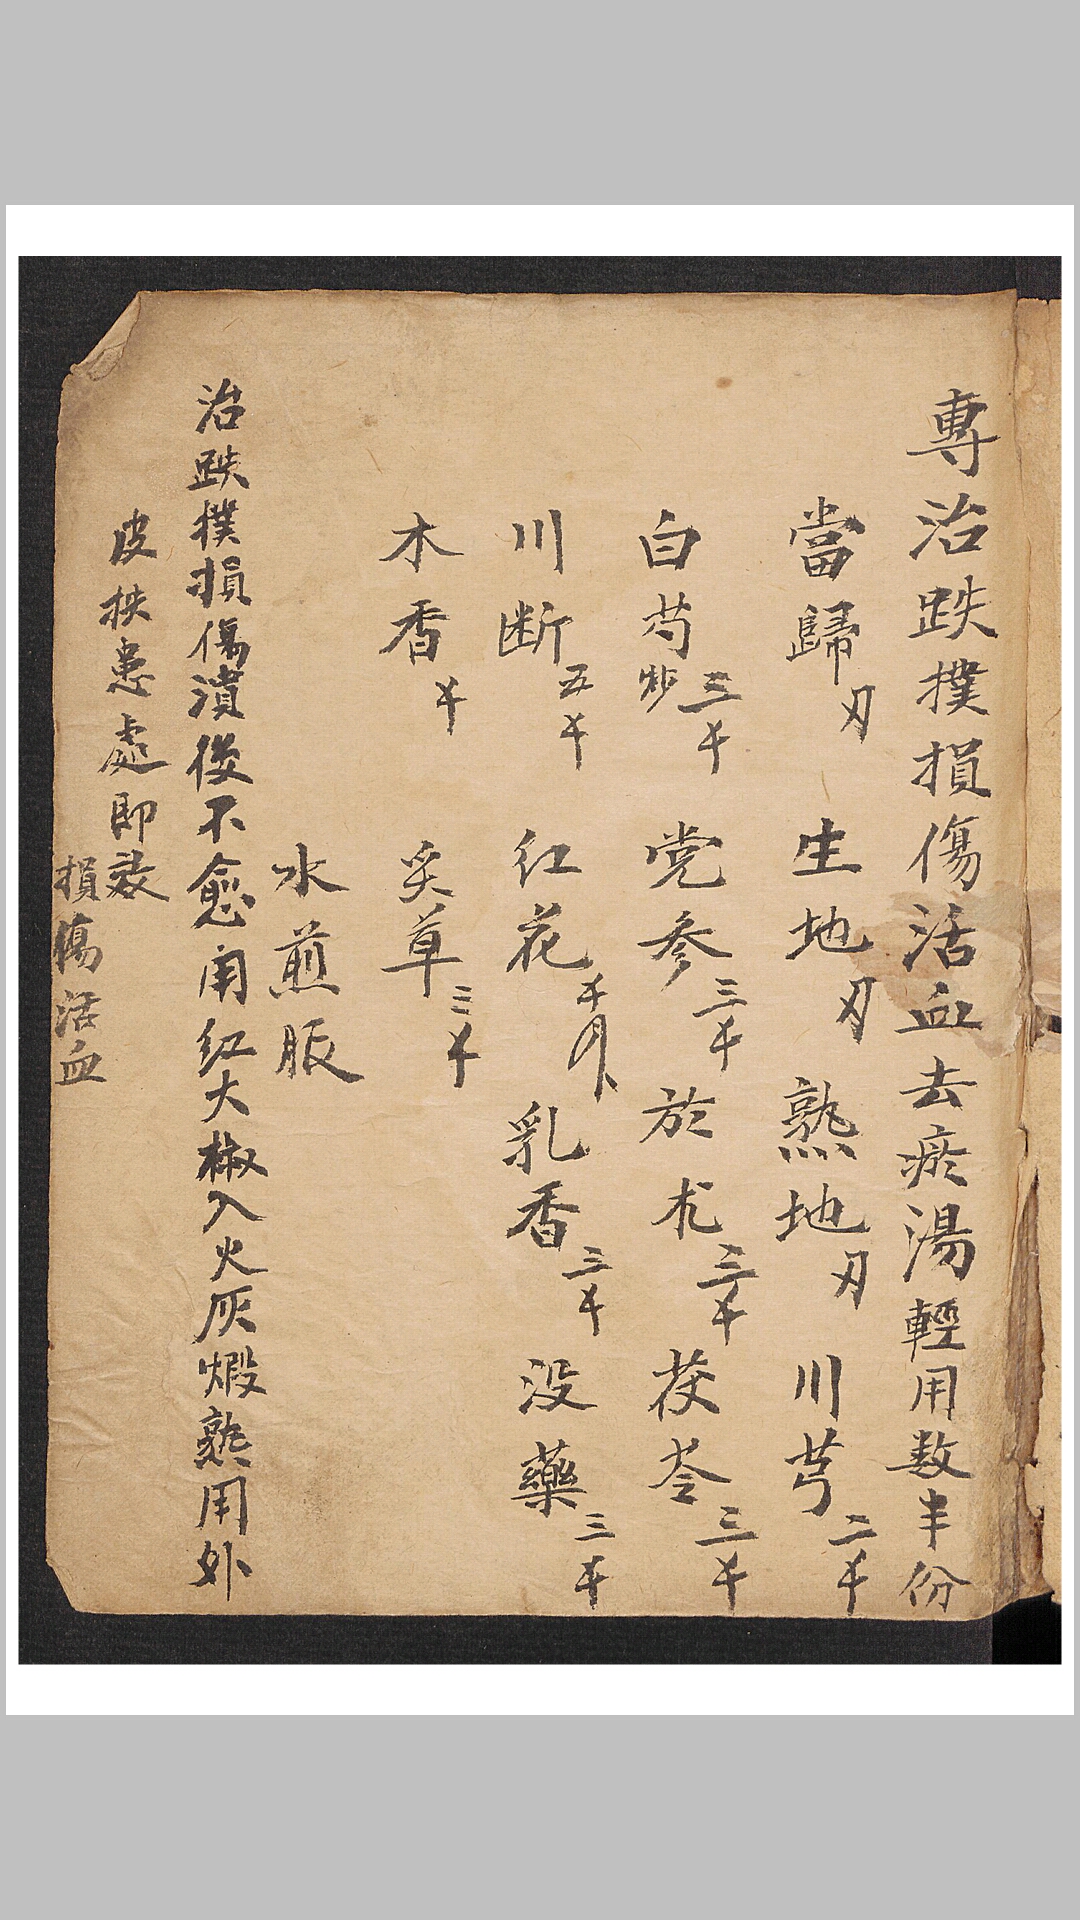 專治跌撲損傷活血去瘀湯輕用数半份
當歸刃 生地刃 熟地刃 川芎二キ
白芍炒三キ 党参三キ 於朮三キ 茯苓三キ
川断五キ 红花キ 乳香三キ 没藥三キ
木香キ 炙草三キ
水煎服
治跌撲損傷潰後不愈用红大椒入火灰煅熟用外
皮抉患處即效
損傷活血